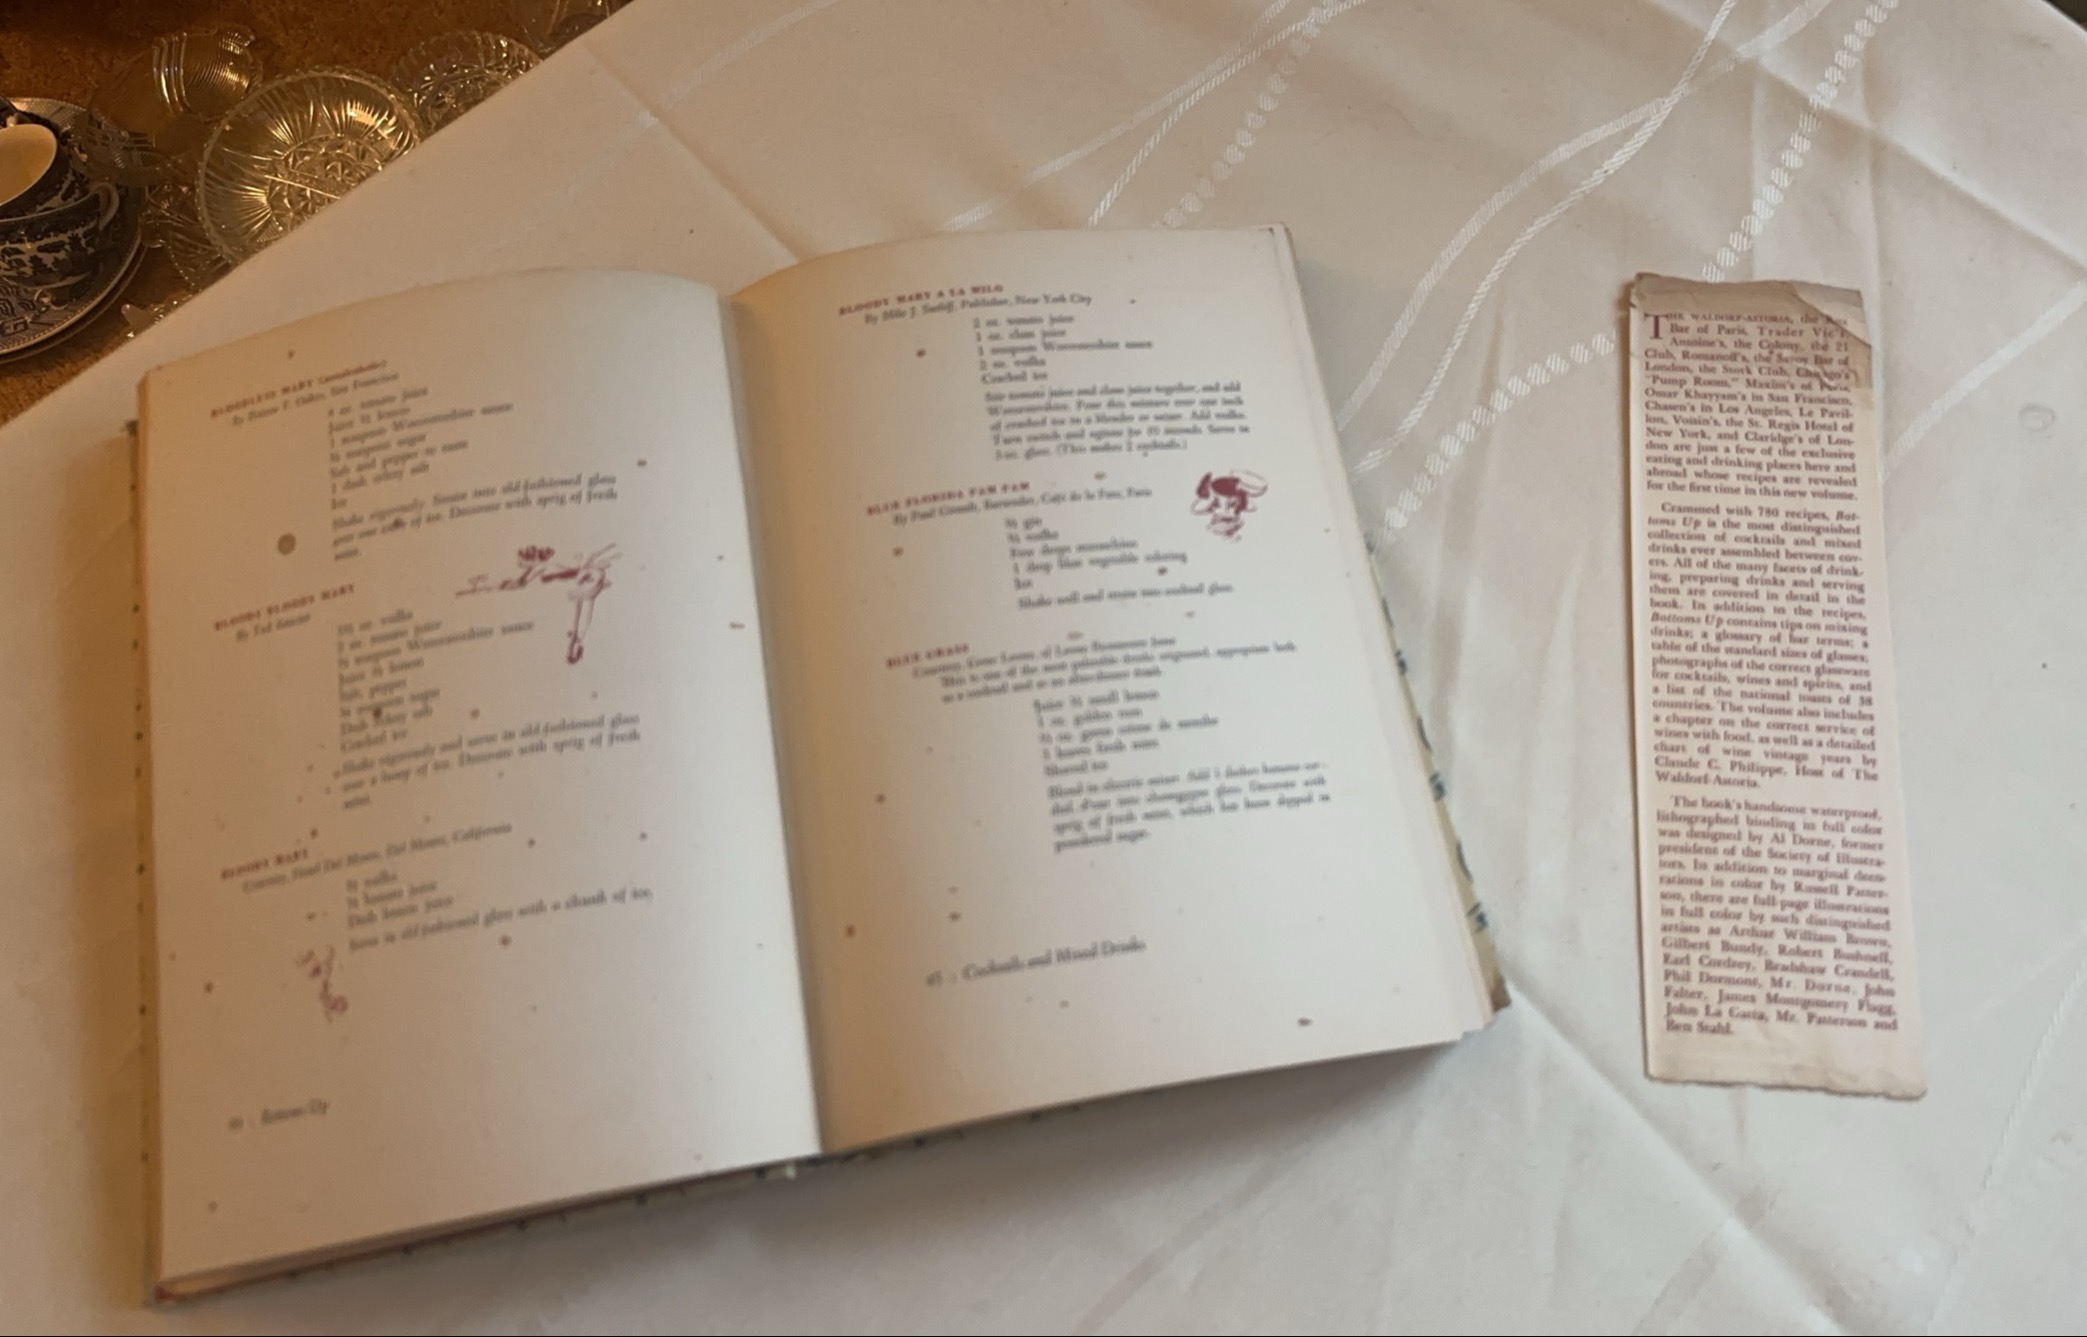 BLOODLESS MARY (nonalcoholic)
By Oakes, San Francisco
4 oz. tomato juice
Juice ½ lemon
1 teaspoon Worcestershire sauce
½ teaspoon sugar
Salt and pepper to taste
1 dash celery salt
Ice
Shake vigorously. Strain into old-fashioned glass
over one cube of ice. Decorate with sprig of fresh
mint.
BLOODY BLOODY MARY
By Ted Saucier
1½ oz. vodka
2 oz. tomato juice
½ teaspoon Worcestershire sauce
Juice ½ lemon
Salt, pepper
teaspoon sugar
Dash celery salt
Cracked ice
Shake vigorously and serve in old-fashioned glass
over a lump of ice. Decorate with sprig of fresh
mint.
BLOODY MARY
Courtesy, Hotel Del Monte, Del Monte, California
½ vodka
½ tomato juice
Dash lemon juice
Serve in old-fashioned glass with a chunk of ice.
Bottoms Up
BLOODY MARY A LA MILO
By Milo J. Sutliff, Publisher, New York City
2 oz. tomato juice
1 oz. clam juice
1 teaspoon Worcestershire sauce
2 oz. vodka
Cracked ice
Stir tomato juice and clam juice together, and add
Worcestershire. Pour this mixture over one inch
of cracked ice in a blender or mixer. Add vodka.
Turn switch and agitate for 10 seconds. Serve in
3-oz. glass. (This makes 2 cocktails.)
BLUE FLORIDE PAM PAM
By Paul Bartender, Café de la Paix, Paris
½ gin
½ vodka
Few drops maraschino
1 drop blue vegetable coloring
Ice
Shake well and strain into cocktail glass.
BLUE GRASS
Courtesy, of
This is one of the most palatable drinks engineered, appropriate both
as a cocktail and as an after-dinner drink.
Juice ½ small lemon
1 oz. golden rum
½ oz. green crème de menthe
5 leaves fresh mint
Shaved ice
Blend in electric mixer. Add
Pour into champagne glass. Decorate with
sprig of fresh mint, which has been dipped in
powdered sugar.
Cocktails and Mixed Drinks
THE WALDORF-ASTORIA, the Ritz
Bar of Paris, Trader Vic's,
Antoine's, the Colony, the 21
Club, Romanoff's, the Savoy Bar of
London, the Stork Club, Chicago's
"Pump Room," Maxim's of Paris,
Omar Khayyam's in San Francisco,
Chasen's in Los Angeles, Le Pavil-
lon, Voisin's, the St. Regis Hotel of
New York, and Claridge's of Lon-
don are just a few of the exclusive
eating and drinking places here and
abroad whose recipes are revealed
for the first time in this new volume.
Crammed with 780 recipes, Bot-
toms Up is the most distinguished
collection of cocktails and mixed
drinks ever assembled between cov-
ers. All of the many facets of drink-
ing, preparing drinks and serving
them are covered in detail in the
book. In addition to the recipes,
Bottoms Up contains tips on mixing
drinks; a glossary of bar terms; a
table of the standard sizes of glasses;
photographs of the correct glassware
for cocktails, wines and spirits, and
a list of the national toasts of 38
countries. The volume also includes
a chapter on the correct service of
wines with food, as well as a detailed
chart of wine vintage years by
Claude C. Philippe, Host of The
Waldorf-Astoria.
The book's handsome waterproof,
lithographed binding in full color
was designed by Al Dorne, former
president of the Society of Illustra-
tors. In addition to marginal deco-
rations in color by Russell Patter-
son, there are full-page illustrations
in full color by such distinguished
artists as Arthur William Brown,
Gilbert Bundy, Robert Bushnell,
Earl Cordrey, Bradshaw Crandell,
Phil Dormont, Mr. Dorne, John
Falter, James Montgomery Flagg,
John La Gatta, Mr. Patterson and
Ben Stahl.